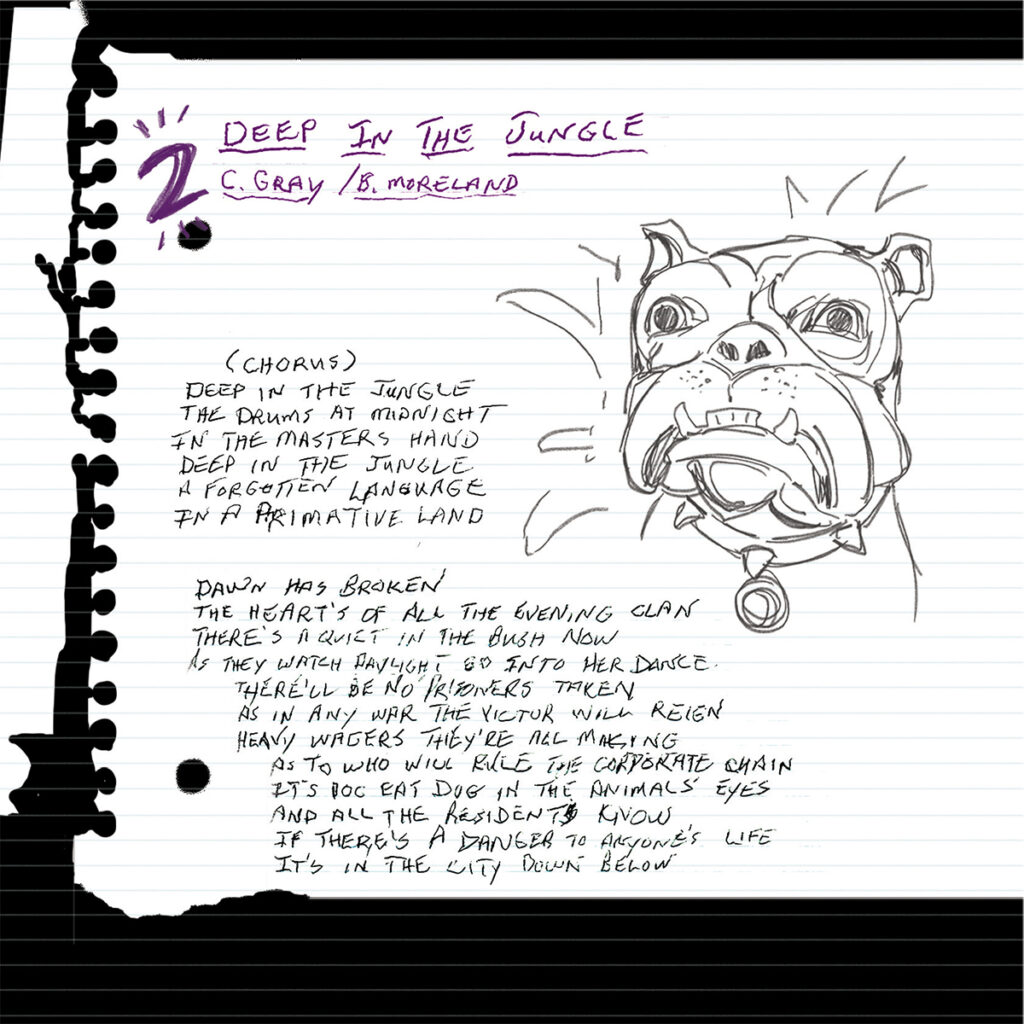 2
DEEP IN THE JUNGLE
C. GRAY / B. MORELAND
(CHORUS)
DEEP IN THE JUNGLE
THE DRUMS AT MIDNIGHT
IN THE MASTERS HAND
DEEP IN THE JUNGLE
A FORGOTTEN LANGUAGE
IN A PRIMATIVE LAND
DAWN HAS BROKEN
THE HEART'S OF ALL THE EVENING CLAN
THERE'S A QUIET IN THE BUSH NOW
AS THEY WATCH DAYLIGHT GO INTO HER DANCE.
THERE'LL BE NO PRISONERS TAKEN
AS IN ANY WAR THE VICTOR WILL REIGN
HEAVY WAGERS THEY'RE ALL MAKING
AS TO WHO WILL RULE THE CORPORATE CHAIN
IT'S DOG EAT DOG IN THE ANIMALS' EYES
AND ALL THE RESIDENTS KNOW
IF THERE'S A DANGER TO ANYONE'S LIFE
IT'S IN THE CITY DOWN BELOW